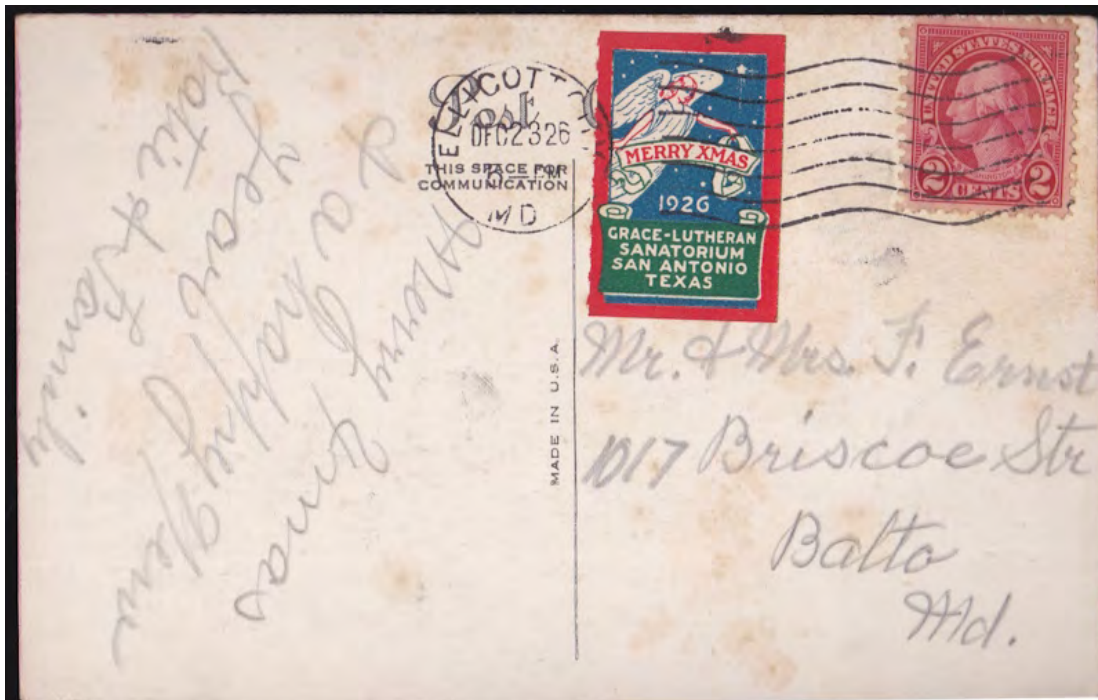 Merry Xmas
& a Happy New
Year
Katie & Family
Post
ELLICOTT
DEC 23 26
MD
THIS SPACE FOR
COMMUNICATION
MADE IN U.S.A.
MERRY XMAS
1926
GRACE-LUTHERAN
SANATORIUM
SAN ANTONIO
TEXAS
UNITED STATES POSTAGE
2 CENTS 2
Mr. & Mrs. F. Ernst
1017 Briscoe Str
Balto
Md.